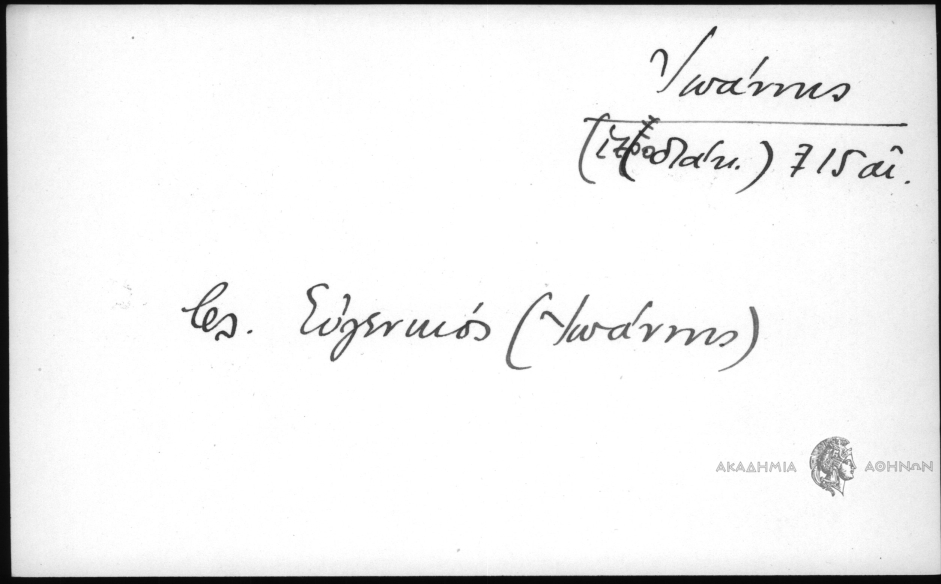 Ἰωάννης
(ἱεροδιάκ.) 715 αἰ.
βλ. Εὐγενικός (Ἰωάννης)
ΑΚΑΔΗΜΙΑ ΑΘΗΝΩΝ